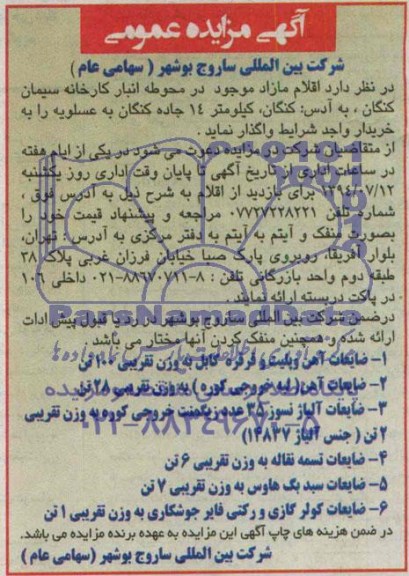 آگهی مزایده عمومی
شرکت بین المللی ساروج بوشهر ( سهامی عام )
در نظر دارد اقلام مازاد موجود در محوطه انبار کارخانه سیمان
کنگان ، به آدس: کنگان، کیلومتر ١٤ جاده کنگان به عسلویه را به
خریدار واجد شرایط واگذار نماید .
از متقاضیان شرکت در مزایده دعوت می شود در یکی از ایام هفته
در ساعات اداری از تاریخ آگهی تا پایان وقت اداری روز یکشنبه
١٣٩٤/٠٧/١٢ برای بازدید از اقلام به شرح ذیل به آدرس فوق ،
شماره تلفن ٠٧٧٣٧٢٢٨٢٢١ مراجعه و پیشنهاد قیمت خود را
بصورت منفک و آیتم به آیتم به دفتر مرکزی به آدرس : تهران،
بلوار آفریقا، روبروی پارک صبا خیابان فرزان غربی پلاک ٣٨
طبقه دوم واحد بازرگانی تلفن : ٨-٨٨٦٧٠٧١١-٠٢١ داخلی ١٠٦
در پاکت دربسته ارائه نمایند .
درضمن شرکت بین المللی ساروج بوشهر در رد یا قبول پیشنهادات
ارائه شده و همچنین منفک کردن آنها مختار می باشد .
١- ضایعات آهن و پلیت و قرقره کابل به وزن تقریبی ١٠٠ تن
٢- ضایعات آهن (لبه خروجی کوره) به وزن تقریبی ٢٨ تن
٣- ضایعات آلیاژ نسوز ٣٥ عدد زیگمنت خروجی کوره به وزن تقریبی
٢ تن ( جنس آلیاژ ١٤٨٣٧)
٤- ضایعات تسمه نقاله به وزن تقریبی ٦ تن
٥- ضایعات سبد بگ هاوس به وزن تقریبی ٧ تن
٦- ضایعات کولر گازی و رکتی فایر جوشکاری به وزن تقریبی ١ تن
در ضمن هزینه های چاپ آگهی این مزایده به عهده برنده مزایده می باشد.
شرکت بین المللی ساروج بوشهر (سهامی عام )
ParsNamadData
٠٢١-٨٨٣٤٩٦٧٠-٥